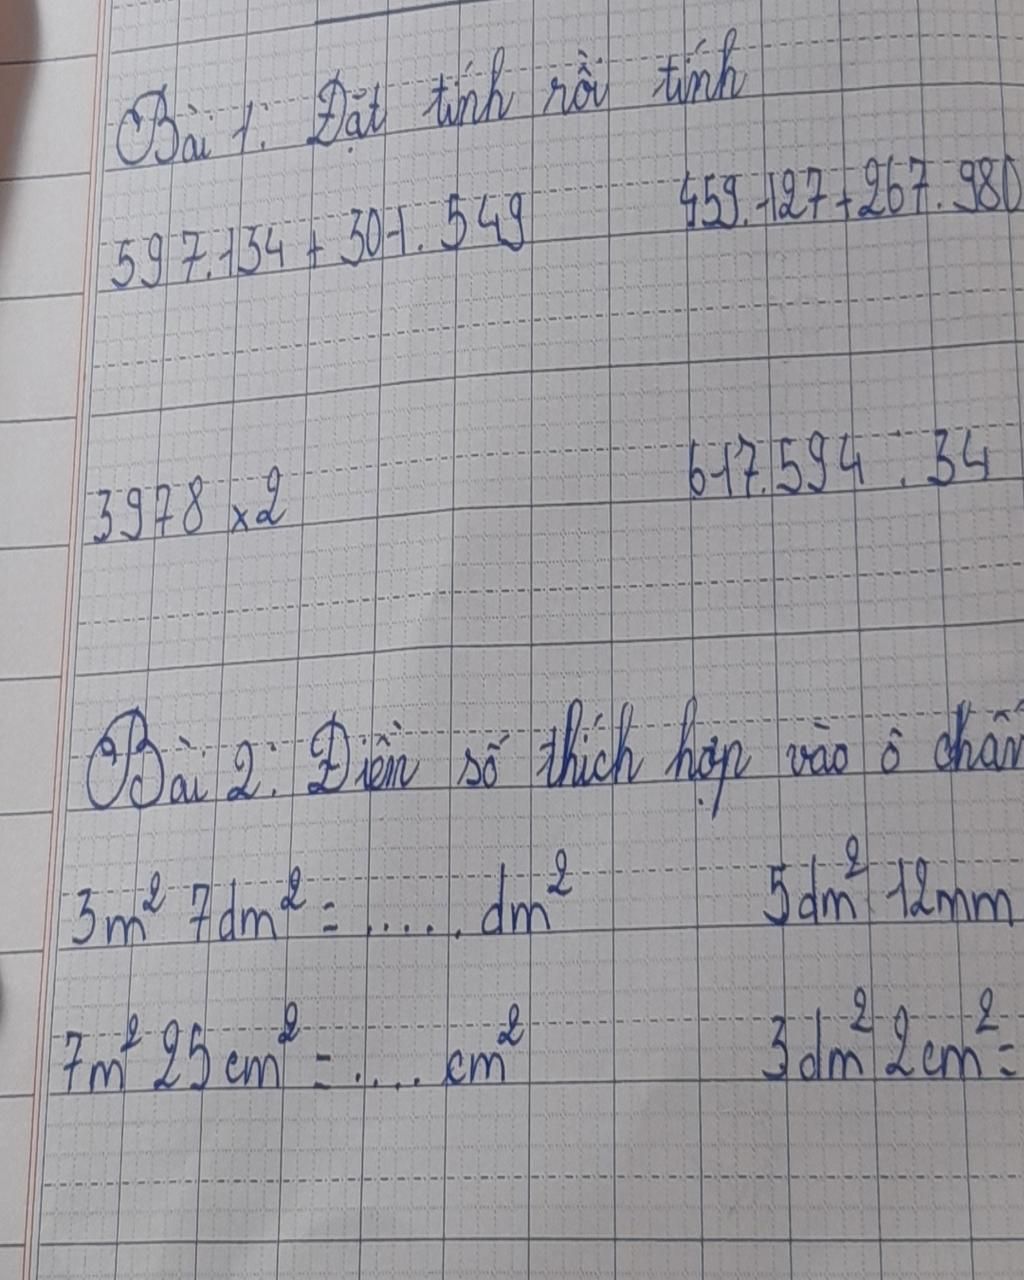 Bài 1. Đặt tính rồi tính
597.134 + 301.549 459.127 + 267.980
3978 x 2 617.594 : 34
Bài 2. Điền số thích hợp vào ô
3m² 7dm² = ..... dm² 5dm² 12mm
7m² 25cm² = ..... cm² 3dm² 2cm² =